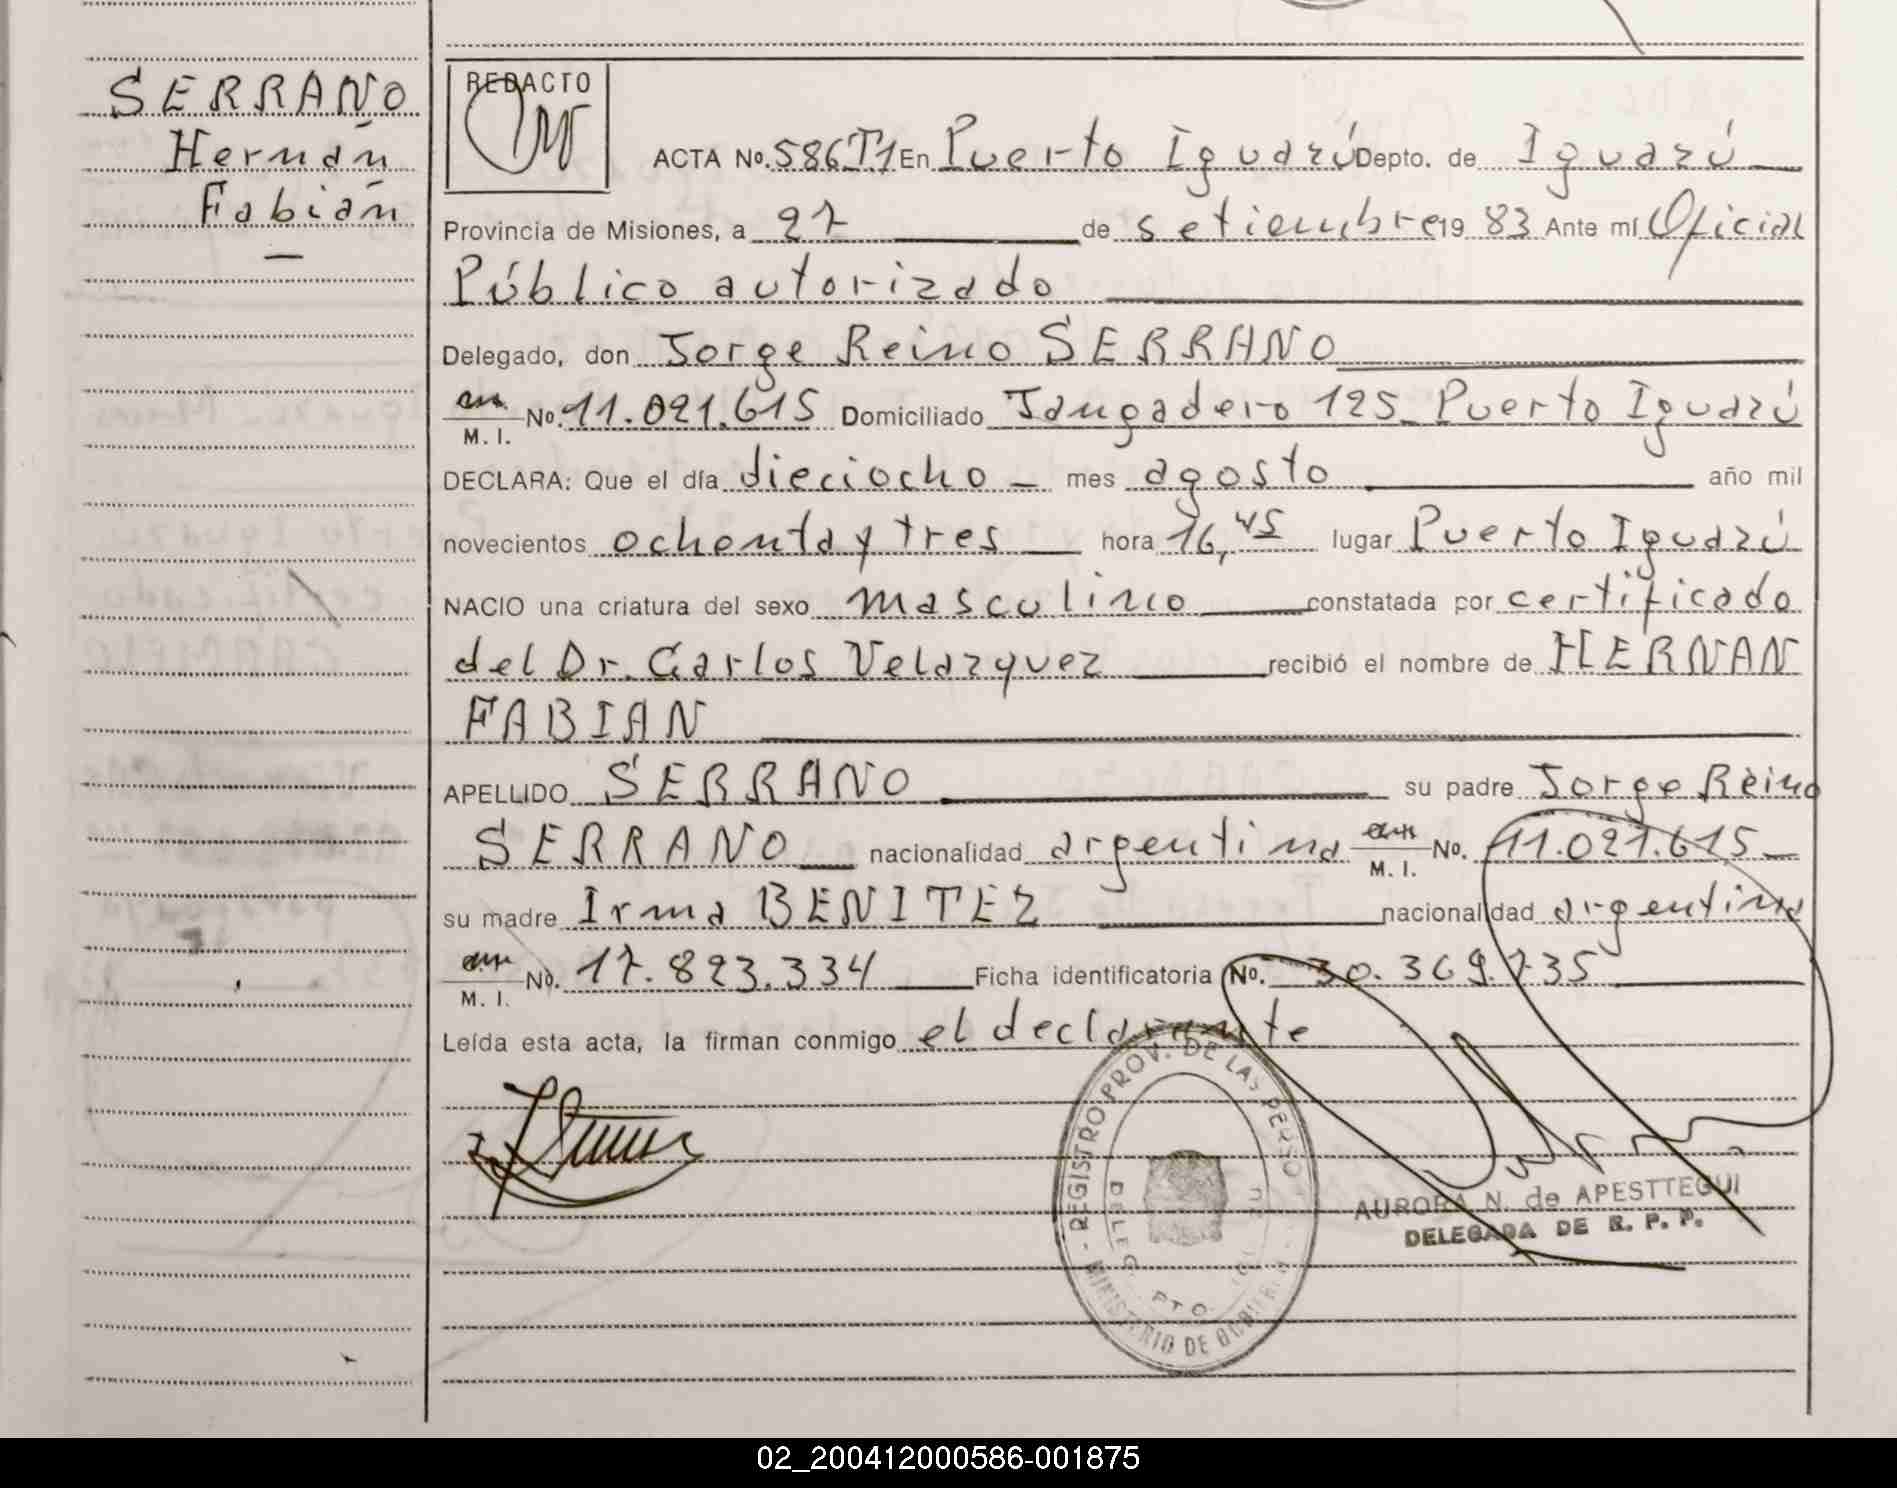 SERRANO
Hernán
Fabián
—
REDACTO
ACTA No. 586T1 En Puerto Iguazú Depto. de Iguazú
Provincia de Misiones, a 27 de setiembre 19 83 Ante mí Oficial
Público autorizado
Delegado, don Jorge Reino SERRANO
M. I. No. 11.021.615 Domiciliado Jangadero 125_ Puerto Iguazú
DECLARA: Que el día dieciocho — mes agosto año mil
novecientos ochenta y tres hora 16,45 lugar Puerto Iguazú
NACIO una criatura del sexo masculino constatada por certificado
del Dr. Carlos Velazquez recibió el nombre de HERNAN
FABIAN
APELLIDO SERRANO su padre Jorge Reino
SERRANO nacionalidad argentina M. I. No. 11.021.615
su madre Irma BENITEZ nacionalidad argentina
M. I. No. 17.823.334 Ficha identificatoria No. 30.369.735
Leída esta acta, la firman conmigo el declarante
REGISTRO PROV. DE LAS PERSO
MINISTERIO DE
DELEG. PTO.
AURORA N. de APESTTEGUI
DELEGADA DE R. P. P.
02_200412000586-001875